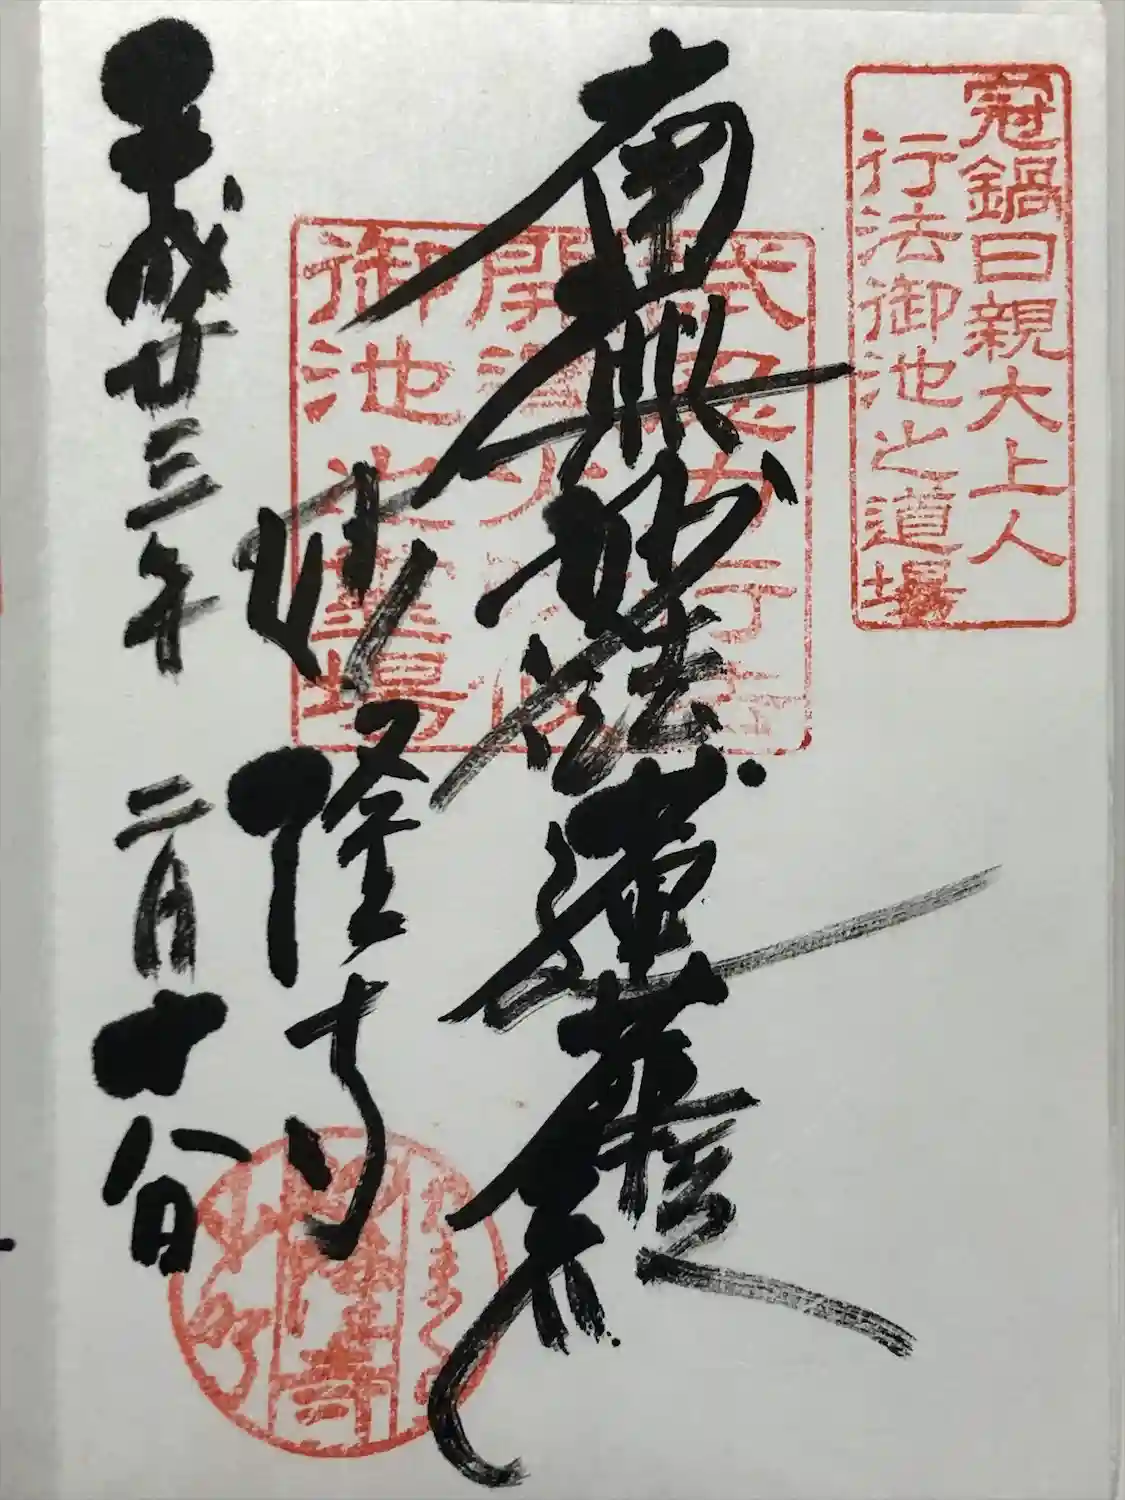 冠鍋日親大上人
行法御池之道場
南無妙法蓮華経
開
御池之霊場
妙隆寺
平成廿三年 二月十八日